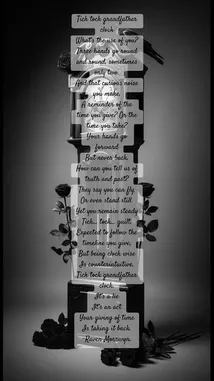 Tick tock grandfather
clock
What's the use of you?
Three hands go round
and round, sometimes
only two.
And that curious noise
you make,
A reminder of the
time you give? Or the
time you take?
Your hands go
forward
But never back,
How can you tell us of
truth and past?
They say you can fly
Or even stand still.
Yet you remain steady
Tick... tock... guilt.
Expected to follow the
timeline you give,
But being clock wise
Is counterintuitive.
Tick tock grandfather
clock
It's a lie
It's an act
Your giving of time
Is taking it back.
-Raven Morrwyn